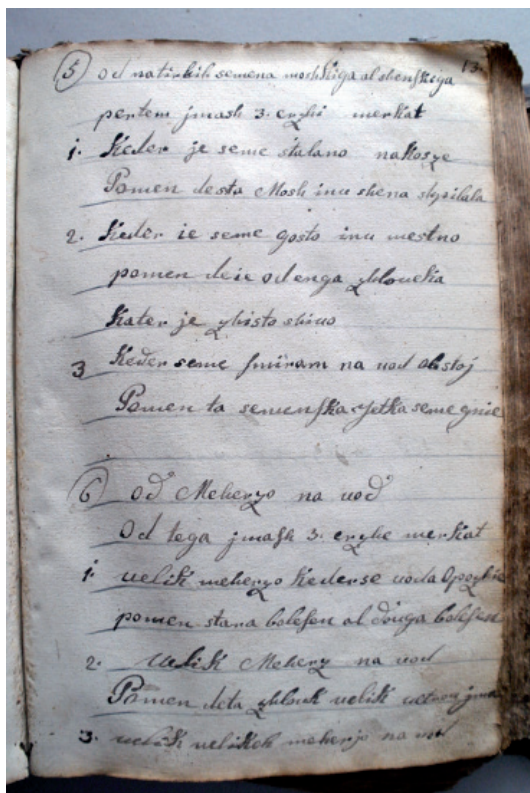 13.
5 od natirkih semena moshkiga al shenskiga
pertem jmash 3. erzhi merkat
1. Keder je seme stalano nakosze
Pomen desta Mosh inu shena skpilala
2. Keder ie seme gosto inu mestno
pomen deie od enga zhloveka
Kater je zhisto shivo
3 Keder seme smiram na vod obstoj
Pomen ta semenska shetka seme gnie
6 od Meherzo na vod
Od tega jmash 3. erzhe merkat
1. velik meherzo Kederse voda
pomen stara bolesen al douga bolesen
2. velik Meherz na vod
Pomen deta zhlovk velik vetrou jma
3. velik velikeh meherjo na vod